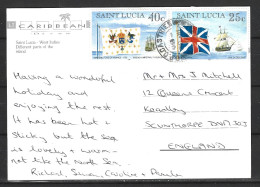 CARIBBEAN
Saint Lucia - West Indies
Different parts of the
island
SAINT LUCIA 40c
SAINT LUCIA 25c
Having a wonderful
holiday and
enjoying the rest.
It has been hot &
sticky but the sea
is lovely & warm -
not like the North Sea.
Richard, Simon, Caroline + Pamela
Mr + Mrs J Mitchell
12 Queens Crescent
SCUNTHORPE
ENGLAND